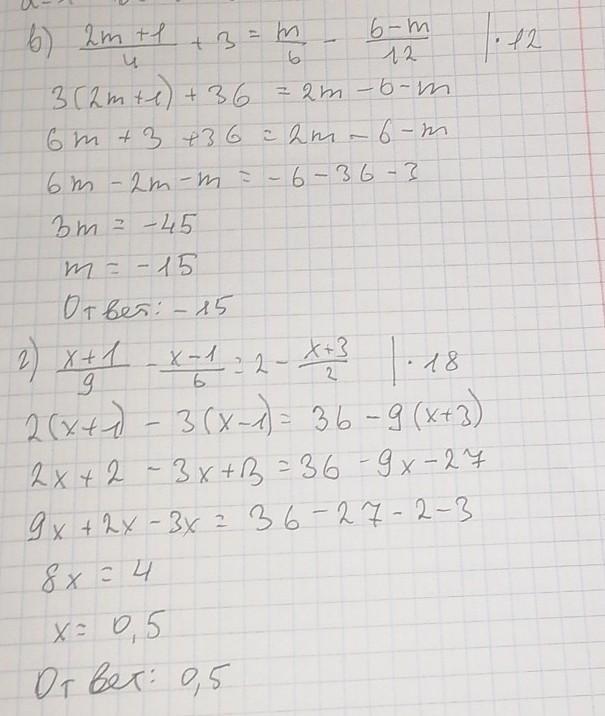 в) (2m+1)/4 + 3 = m/6 - (6-m)/12 | · 12
3(2m+1) + 36 = 2m - 6 - m
6m + 3 + 36 = 2m - 6 - m
6m - 2m - m = -6 - 36 - 3
3m = -45
m = -15
Ответ: -15
г) (x+1)/9 - (x-1)/6 = 2 - (x+3)/2 | · 18
2(x+1) - 3(x-1) = 36 - 9(x+3)
2x + 2 - 3x + 3 = 36 - 9x - 27
9x + 2x - 3x = 36 - 27 - 2 - 3
8x = 4
x = 0,5
Ответ: 0,5